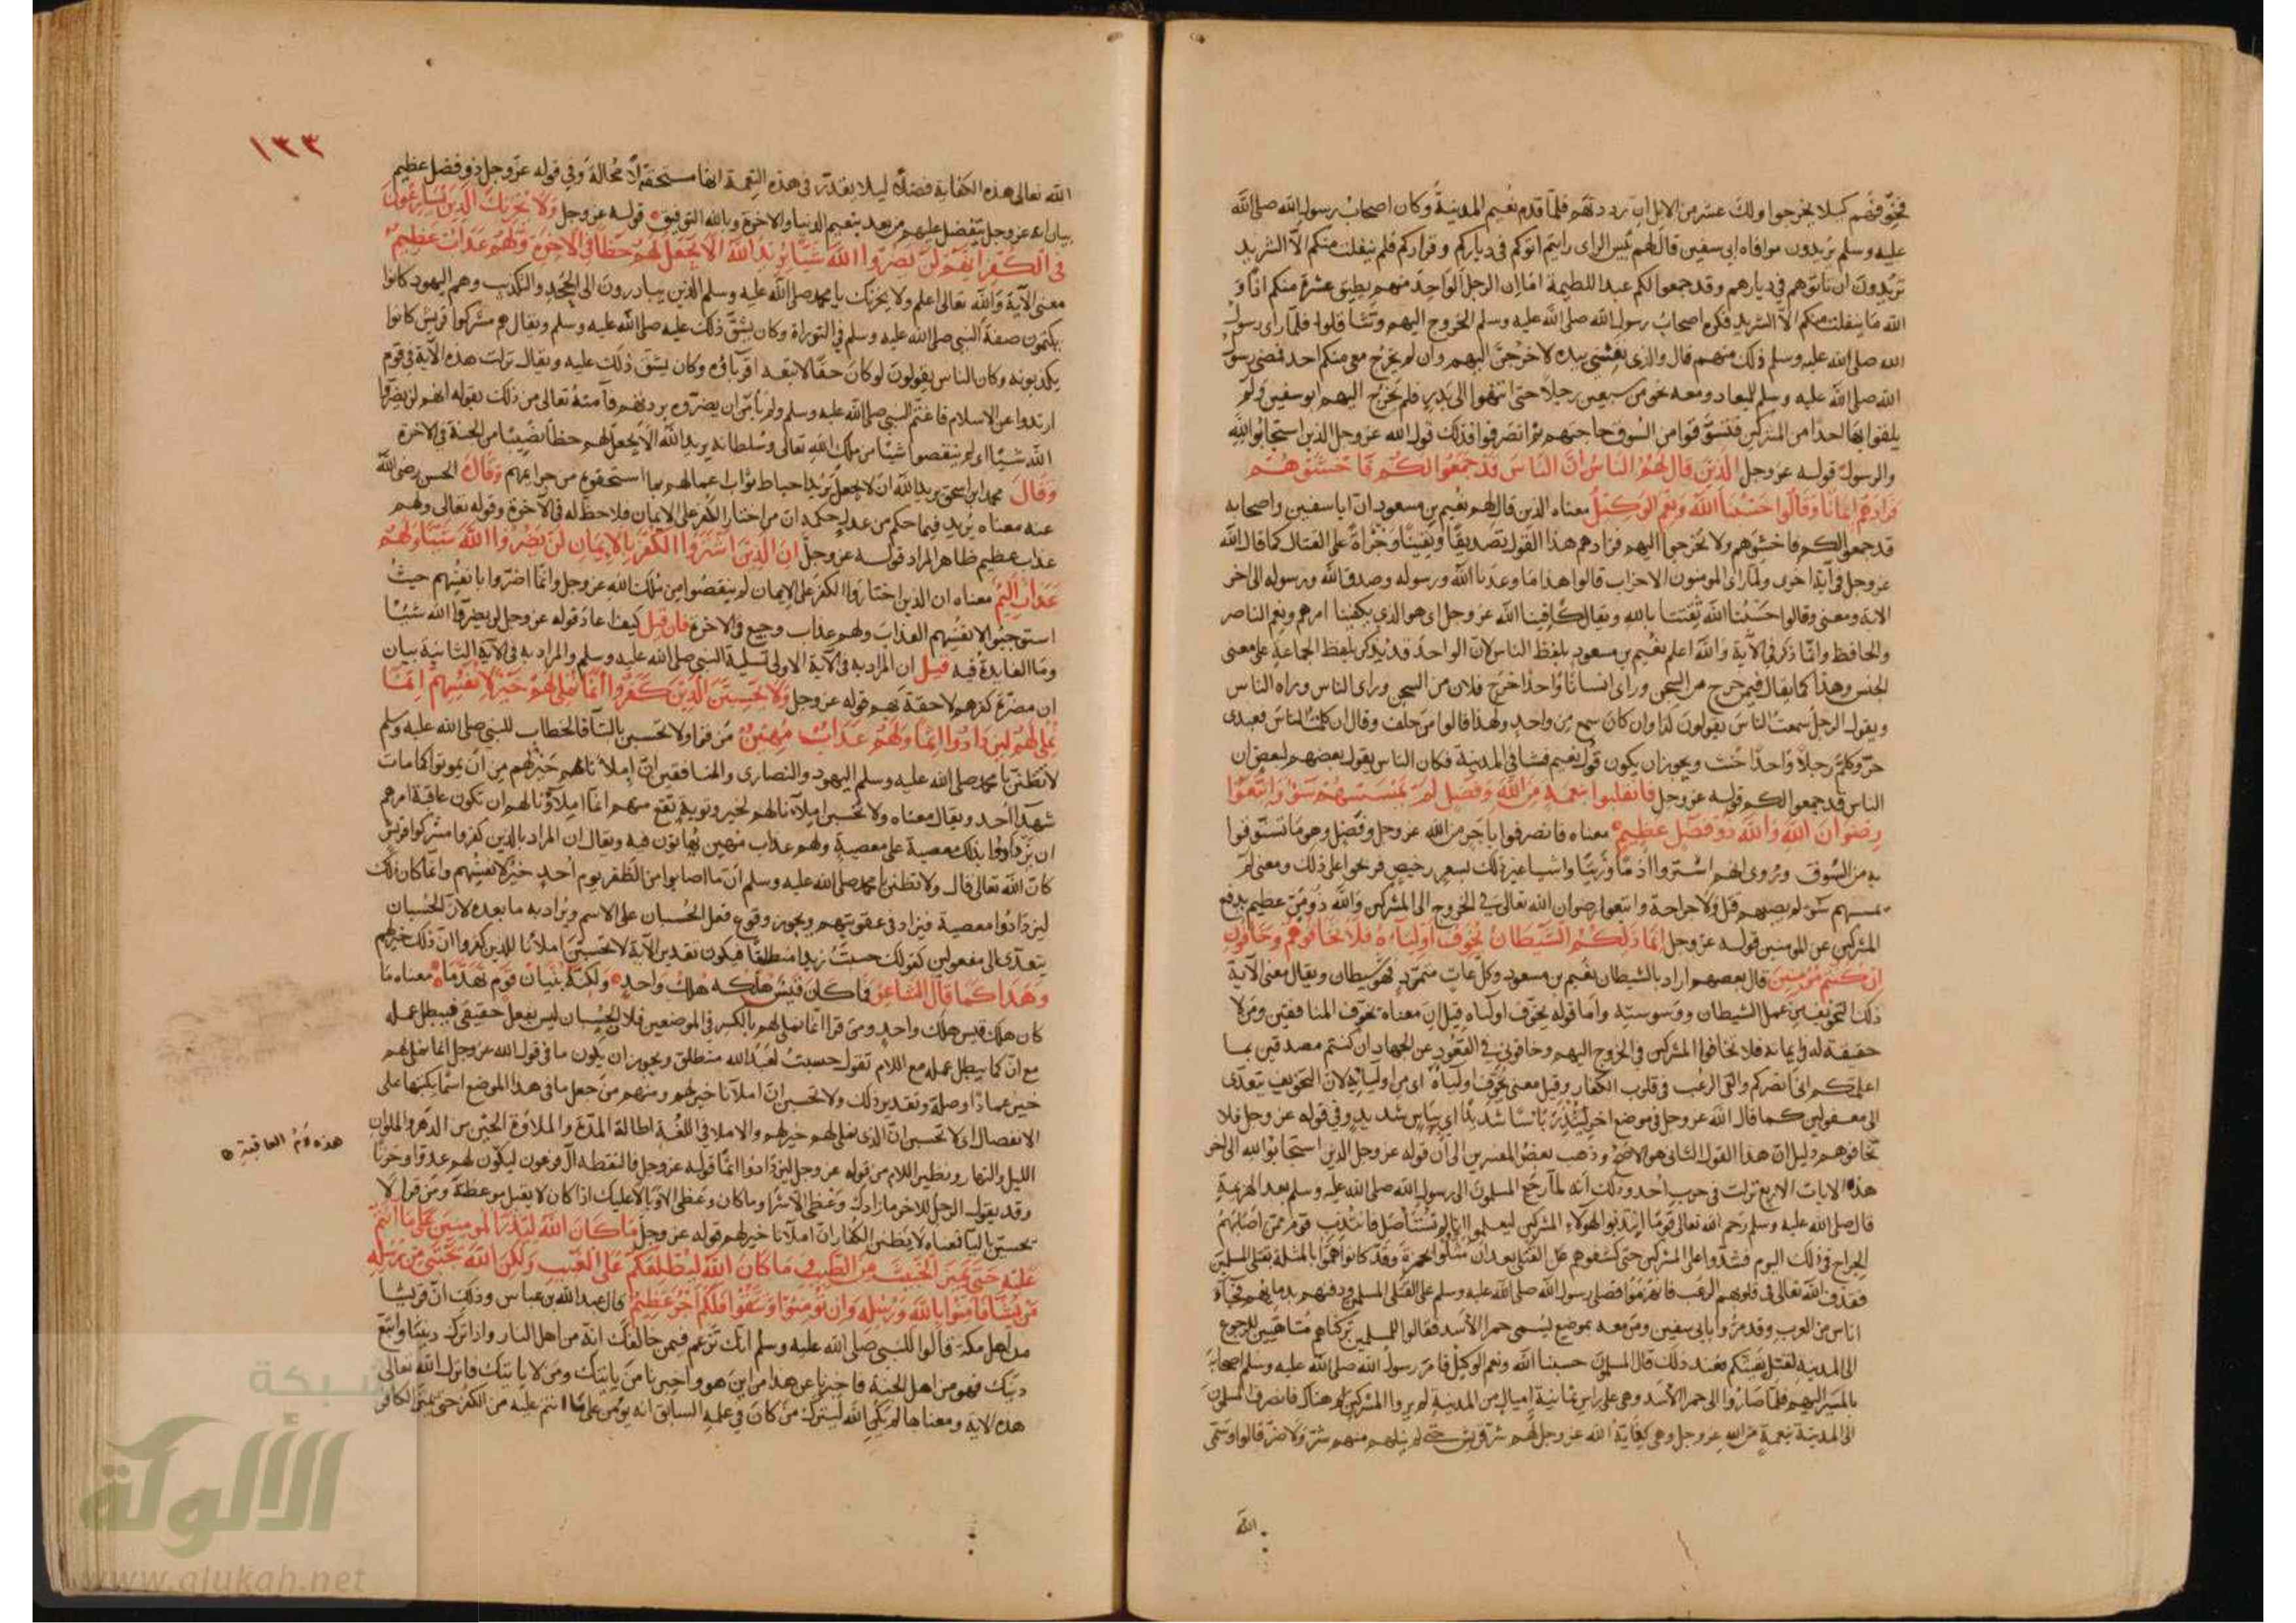 فخوّفهم كيلا يخرجوا ولك عشر من الابل ان رددتهم فلمّا قدم نعيم المدينة وكان اصحاب رسول الله صلى الله
عليه وسلم يريدون موافاه ابي سفين قال لهم بئس الراى رايتم اتوكم في دياركم وقراركم فلم ينفلت منكم الّا الشريد
تريدون ان تاتوهم في ديارهم وقد جمعوا لكم عند اللطيمة امّا ان الرجل الواحد منهم يطيق عشرة منكم اذًا و
الله ما ينفلت منكم الّا الشريد فكره اصحاب رسول الله صلى الله عليه وسلم الخروج اليهم وتثاقلوا فلمّا راى رسول
الله صلى الله عليه وسلم ذلك منهم قال والذي نفسي بيده لاخرجنّ اليهم وان لم يخرج معي منكم احد فمضى رسول
الله صلى الله عليه وسلم للميعاد ومعه نحو من سبعين رجلًا حتى انتهوا الى بدر فلم يخرج اليهم ابو سفين ولم
يلقوا بها احدا من المشركين فتسوّقوا من السوق حاجتهم ثم انصرفوا فذلك قول الله عز وجل الذين استجابوا لله
والرسول قوله عز وجل الذين قال لهم الناس ان الناس قد جمعوا لكم فاخشوهم
فزادهم ايمانا وقالوا حسبنا الله ونعم الوكيل معناه الذين قال لهم نعيم بن مسعود انّ ابا سفين واصحابه
قد جمعوا لكم فاخشوهم ولا تخرجوا اليهم فزادهم هذا القول تصديقًا ويقينًا وجُرأة على القتال كما قال الله
عز وجل في آية اخرى ولمّا راى المومنون الاحزاب قالوا هذا ما وعدنا الله ورسوله وصدق الله ورسوله الى اخر
الاية ومعنى وقالوا حسبنا الله ثقتنا بالله ويقال كافينا الله عز وجل اى هو الذي يكفينا امرهم ونعم الناصر
والحافظ وانّما ذكر في الآية والله اعلم نعيم بن مسعود بلفظ الناس لانّ الواحد قد يُذكر بلفظ الجماعة على معنى
الجنس وهذا كما يقال فيمن خرج من السجن وراى انسانا واحدًا خرج فلان من السجن وراى الناس وراه الناس
ويقول الرجل سمعت الناس يقولون كذا وان كان سمع من واحد ولهذا قالوا من حلف وقال ان كلمت الناس فعبدى
حرّ وكلّم رجلًا واحدًا حنث ويجوز ان يكون قول نعيم فشا في المدينة فكان الناس يقول بعضهم لبعض ان
الناس قد جمعوا لكم قوله عز وجل فانقلبوا بنعمة من الله وفضل لم يمسسهم سوء واتّبعوا
رضوان الله والله ذو فضل عظيم معناه فانصرفوا باجر من الله عز وجل وفضل وهو ما تسوّقوا
به من السّوق ويُروى انهم اشتروا أدمًا وزبيبًا واشيا غير ذلك بسعر رخيص فربحوا على ذلك ومعنى لم
يمسسهم سوء لم يصبهم قتل ولا جراحة واتبعوا رضوان الله تعالى في الخروج الى المشركين والله ذو منّ عظيم بدفع
المشركين عن المومنين قوله عز وجل انّما ذلكم الشيطان يخوّف اولياءه فلا تخافوهم وخافون
ان كنتم مؤمنين قال بعضهم اراد بالشيطان نعيم بن مسعود وكل عاتٍ متمرّد فهو شيطان ويقال معنى الآية
ذلك التخويف من عمل الشيطان ووسوسته وامّا قوله يخوّف اولياءه قيل انّ معناه يخوّف المنافقين ومن لا
حقيقة له في ايمانه فلا تخافوا المشركين في الخروج اليهم وخافوني في القعود عن الجهاد ان كنتم مصدقين بما
اعلمتكم انى انصركم والقى الرعب في قلوب الكفار وقيل معنى يخوّف اولياءه اى من اوليائه لانّ التخويف يتعدّى
الى مفعولين كما قال الله عز وجل في موضع اخر لينذر بأسًا شديدًا اي ببأس شديد وفي قوله عز وجل فلا
تخافوهم دليل انّ هذا القول الثاني هو الاصحّ وذهب بعضُ المفسرين الى أن قوله عز وجل الذين استجابوا لله الى اخر
هذه الايات الاربع نزلت في حرب أحد وذلك أنه لمّا رجع المسلمون الى رسول الله صلى الله عليه وسلم بعد الهزيمة
قال صلى الله عليه وسلم رحم الله تعالى قومًا انتدبوا لهؤلاء المشركين ليعلموا انا لم نُستأصل فانتدب قوم ممّن اصابهم
الجراح في ذلك اليوم فشدّوا على المشركين حتى كشفوهم عن القتلى بعد ان مثلوا بحمزة وقد كانوا همّوا بالمثلة بقتلى المسلمين
فقذف الله تعالى في قلوبهم الرعب فانهزموا فصلى رسول الله صلى الله عليه وسلم على القتلى المسلمين ودفنهم بدمائهم فجاء
اناس من العرب وقد مرّوا بابي سفين ومن معه بموضع ليسمى حمرا الأسد فقالوا للمسلمين تركناهم متأهبين للرجوع
الى المدينة لقتل بقيتكم فعند ذلك قال المسلمون حسبنا الله ونعم الوكيل فامر رسول الله صلى الله عليه وسلم اصحابه
بالمسير اليهم فلمّا صاروا الى حمرا الأسد وهي على راس ثمانية اميال من المدينة لم يروا المشركين هناك فانصرف المسلمون
الى المدينة بنعمة من الله عز وجل وهي كفاية الله عز وجل لهم شرّ قريش حتى لم ينلهم منهم شرّ ولا ضرّ قالوا وسمّى
الله
١٣٣
الله تعالى هذه الكفاية فضلًا ليلا يقدر في هذه النعمة انها مستحقة لا محالة وفي قوله عز وجل ذو فضل عظيم
بيان انه عز وجل يتفضل عليهم من بعد بنعيم الدنيا والاخرة وبالله التوفيق قوله عز وجل ولا يحزنك الذين يسارعون
في الكفر انهم لن يضروا الله شيئا يريد الله الا يجعل لهم حظا في الاخرة ولهم عذاب عظيم
معنى الآية والله تعالى اعلم ولا يحزنك يا محمد صلى الله عليه وسلم الذين يبادرون الى الجحد والتكذيب وهم اليهود كانوا
يكتمون صفة النبي صلى الله عليه وسلم في التوراة وكان يشقّ ذلك عليه صلى الله عليه وسلم ويقال هم مشركوا قريش كانوا
يكذبونه وكان الناس يقولون لو كان حقّا لاتبعه اقرباؤه وكان يشق ذلك عليه ويقال نزلت هذه الآية في قوم
ارتدوا عن الاسلام فاغتمّ النبي صلى الله عليه وسلم ولم يأمن ان يضرّوه بردتهم فآمنه تعالى من ذلك بقوله انهم لن يضرّوا
الله شيئا اى لم ينقصوا شيئا من ملك الله تعالى وسلطانه يريد الله الّا يجعل لهم حظّا نصيبًا من الجنة في الاخرة
وقال محمد ابن اسحق يريد الله ان لا يجعل يريد احباط ثواب اعمالهم بما استحقوه من جرايمهم وقال الحسن رضى الله
عنه معناه يريد فيما حكم من عدله حكمه انّ من اختار الكفر على الايمان فلا حظّ له في الآخرة وقوله تعالى ولهم
عذاب عظيم ظاهر المراد قوله عز وجل ان الذين اشتروا الكفر بالايمان لن يضروا الله شيئا ولهم
عذاب اليم معناه ان الذين اختاروا الكفر على الايمان لم ينقصوا من ملك الله عز وجل وانّما اضرّوا بانفسهم حيث
استوجبوا لانفسهم العذاب ولهم عذاب وجيع في الاخرة فان قيل كيف اعاد قوله عز وجل لن يضرّوا الله شيئًا
وما الفايدة فيه قيل ان المراد به في الآية الاولى تسلية النبي صلى الله عليه وسلم والمراد به في الآية الثانية بيان
ان مضرّة كفرهم لاحقة بهم قوله عز وجل ولا تحسبن الذين كفروا انما نملى لهم خير لانفسهم انما
نملى لهم ليزدادوا اثما ولهم عذاب مهين من قرا ولا تحسبن بالتآ فالخطاب للنبي صلى الله عليه وسلم
لا تظننّ يا محمد صلى الله عليه وسلم اليهود والنصارى والمنافقين انّ إملآنا لهم خير لهم من أن يموتوا كما مات
شهدآ أحد ويقال معناه ولا تحسبن املآنا لهم لخير وتوبة تقع منهم انما املاؤنا لهم ان تكون عاقبة امرهم
ان يزدادوا بذلك معصية على معصية ولهم عذاب مهين يهانون فيه ويقال ان المراد بالذين كفروا مشركوا قريش
كانّ الله تعالى قال ولا تظنن يا محمد صلى الله عليه وسلم انّ ما اصابوا من الظفر يوم أحدٍ خيرٌ لانفسهم وانّما كان ذلك
ليزدادوا معصية فيزاد في عقوبتهم ويجوز وقوع فعل الحسبان على الاسم ويُراد به ما بعده لانّ الحسبان
يتعدّى الى مفعولين كقولك حسبتُ زيدا منطلقًا فيكون تقدير الآية لا تحسبنّ املآنا للذين كفروا انّ ذلك خير لهم
وهذا كما قال الشاعر فما كان قيس هلكه هلك واحد ولكنه بنيان قوم تهدّما معناه ما
كان هلك قيس هلك واحد ومن قرا انّما نملى لهم بالكسر في الموضعين فلان الحسبان ليس بفعل حقيقي فيبطل عمله
مع انّ كما يبطل عمله مع اللام تقول حسبتُ لعبدُ الله منطلق ويجوز ان يكون ما في قول الله عز وجل انما نملى لهم
خير عمادًا وصلة وتقدير ذلك ولا تحسبن انّ املآنا خير لهم ومنهم من جعل ما في هذا الموضع اسمًا بكتبها على
الانفصال اى لا تحسبن انّ الذى نملى لهم خير لهم والاملا في اللغة اطالة المدّة والملاوة الحين من الدهر والملوان
الليل والنهار ونظير اللام من قوله عز وجل ليزدادوا اثما قوله عز وجل فالتقطه آل فرعون ليكون لهم عدوّا وحزنًا
وقد يقول الرجل للاخر ما زادك وعظى الّا شرّا وما كان وعظى الا وبالا عليك اذا كان لا يقبل موعظة ومن قرا لا
يحسبنّ باليآ فمعناه لا يظنن الكفار انّ املآنا خير لهم قوله عز وجل ما كان الله ليذر المومنين على ما انتم
عليه حتى يميز الخبيث من الطيب وما كان الله ليطلعكم على الغيب ولكن الله يجتبى من رسله
من يشا فامنوا بالله ورسله وان تؤمنوا وتتقوا فلكم اجر عظيم قال عبد الله بن عباس وذلك انّ قريشا
من اهل مكة قالوا للنبي صلى الله عليه وسلم انك تزعم فيمن خالفك انّه من اهل النار واذا ترك ديننا واتّبع
دينك فهو من اهل الجنة فاخبرنا عن هذا من اين هو واخبرنا من ياتيك ومن لا ياتيك فانزل الله تعالى
هذه الاية ومعناها لم يكن الله ليترك من كان في علمه السابق انه يؤمن على ما انتم عليه من الكفر حتى يميّز الكافر
هذه لام العاقبة
شبكة
الألوكة
www.alukah.net